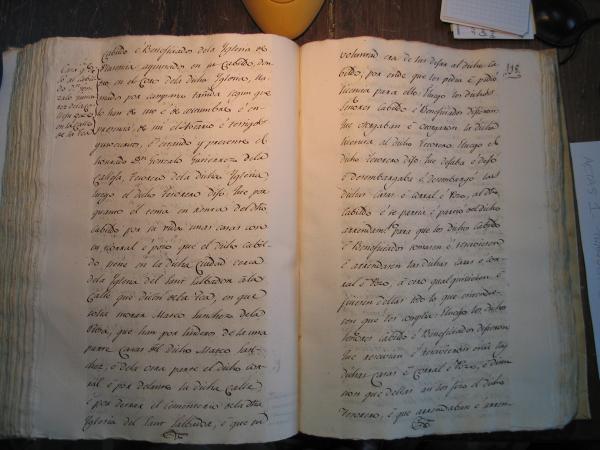 Cabildo é Beneficiados dela Yglesia de
Plasencia ayuntados en su Cabildo, den-
tro en el Coro dela dicha Yglesia, lla-
mados por campana tañida segun que
lo han de uso é de costumbre é en
presencia de mi el Notario é testigos
yusoescritos, é estando y presente el
honrado Dn Gonzalo Gutierrez dela
Calleja, Tesorero dela dicha Yglesia
luego el dicho Tesorero dijo, que por
quanto el tenia en renta del dho
Cabildo por su vida unas casas con
un corral é pozo que el dicho cabil-
do tiene en la dicha Ciudad cerca
dela Yglesia del Sant Salbador ala
Calle que dicen dela Tea, en que
solia morar Marco Sanchez dela
que han por linderos dela una
parte Casas del dicho Marco San-
chez, é dela otra parte el dicho cor-
ral é por delante la dicha Calle
é por detras el cementerio dela dha
Yglesia del Sant Salbador, é que su
Casas q de
jo al cabil-
do Dn Gon-
zalo Gutier-
rez dela Ca-
lleja que
en la Calle
de la Tea
118
voluntad era de las dejar al dicho Ca-
bildo, por ende que les pedia é pidió
licencia para ello: luego los dichos
Señores Cabildo é Beneficiados dijeron
que otorgaban é otorgaron la dicha
licencia al dicho Tesorero: luego el
dicho Tesorero dijo, que dejaba é dejó
é desembargaba é desembargó las
dichas casas é corral é Pozo, al dho
Cabildo é se partia é partió del dicho
arrendamto para que los dichos Cabildo
é Beneficiados tomasen é reciviesen
é arrendasen las dichas casas é cor-
ral é Pozo, á otro qual quisiesen é
ficiesen dellas todo lo que entendie-
sen que les cumplia: luego los dichos
Señores Cabildo é Beneficiados dijeron
que recivian é recivieron en si las
dichas casas é Corral é Pozo, é
non que dellas an les fizo el dicho
Tesorero, é que arrendaban é arren-